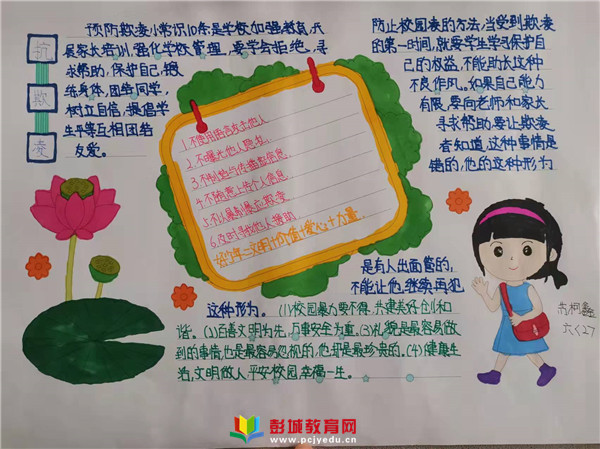 抗
欺
凌
预防欺凌小常识10条是学校加强教育,开
展家长培训,强化学校管理,要学会拒绝,寻
求帮助,保护自己,锻
练身体,团结同学,
树立自信,提倡学
生平等互相团结
友爱。
1.不使用语言攻击他人
2.不曝光他人隐私.
3.不制造与传播虚假信息.
4.不随意上传个人信息.
5.不以暴制暴止欺凌
6.及时寻找他人帮助.
防止校园凌的方法,当受到欺凌
的第一时间,就要学生学习保护自
己的权益,不能助长这种
不良作风。如果自己能力
有限,要向老师和家长
寻求帮助,要让欺凌
者知道,这种事情是
错的,他的这种形为
是有人出面管的,
不能让他,继续再犯
这种形为。(1)校园暴力要不得,共建美好创和
谐。(2)百善文明为先,万事安全为重。(3)礼貌是最容易做
到的事情,也是最容易忽视的,也却是最珍贵的。(4)健康生
活,文明做人,平安校园幸福一生。
六(2)
彭城教育网
www.pcjyedu.cn